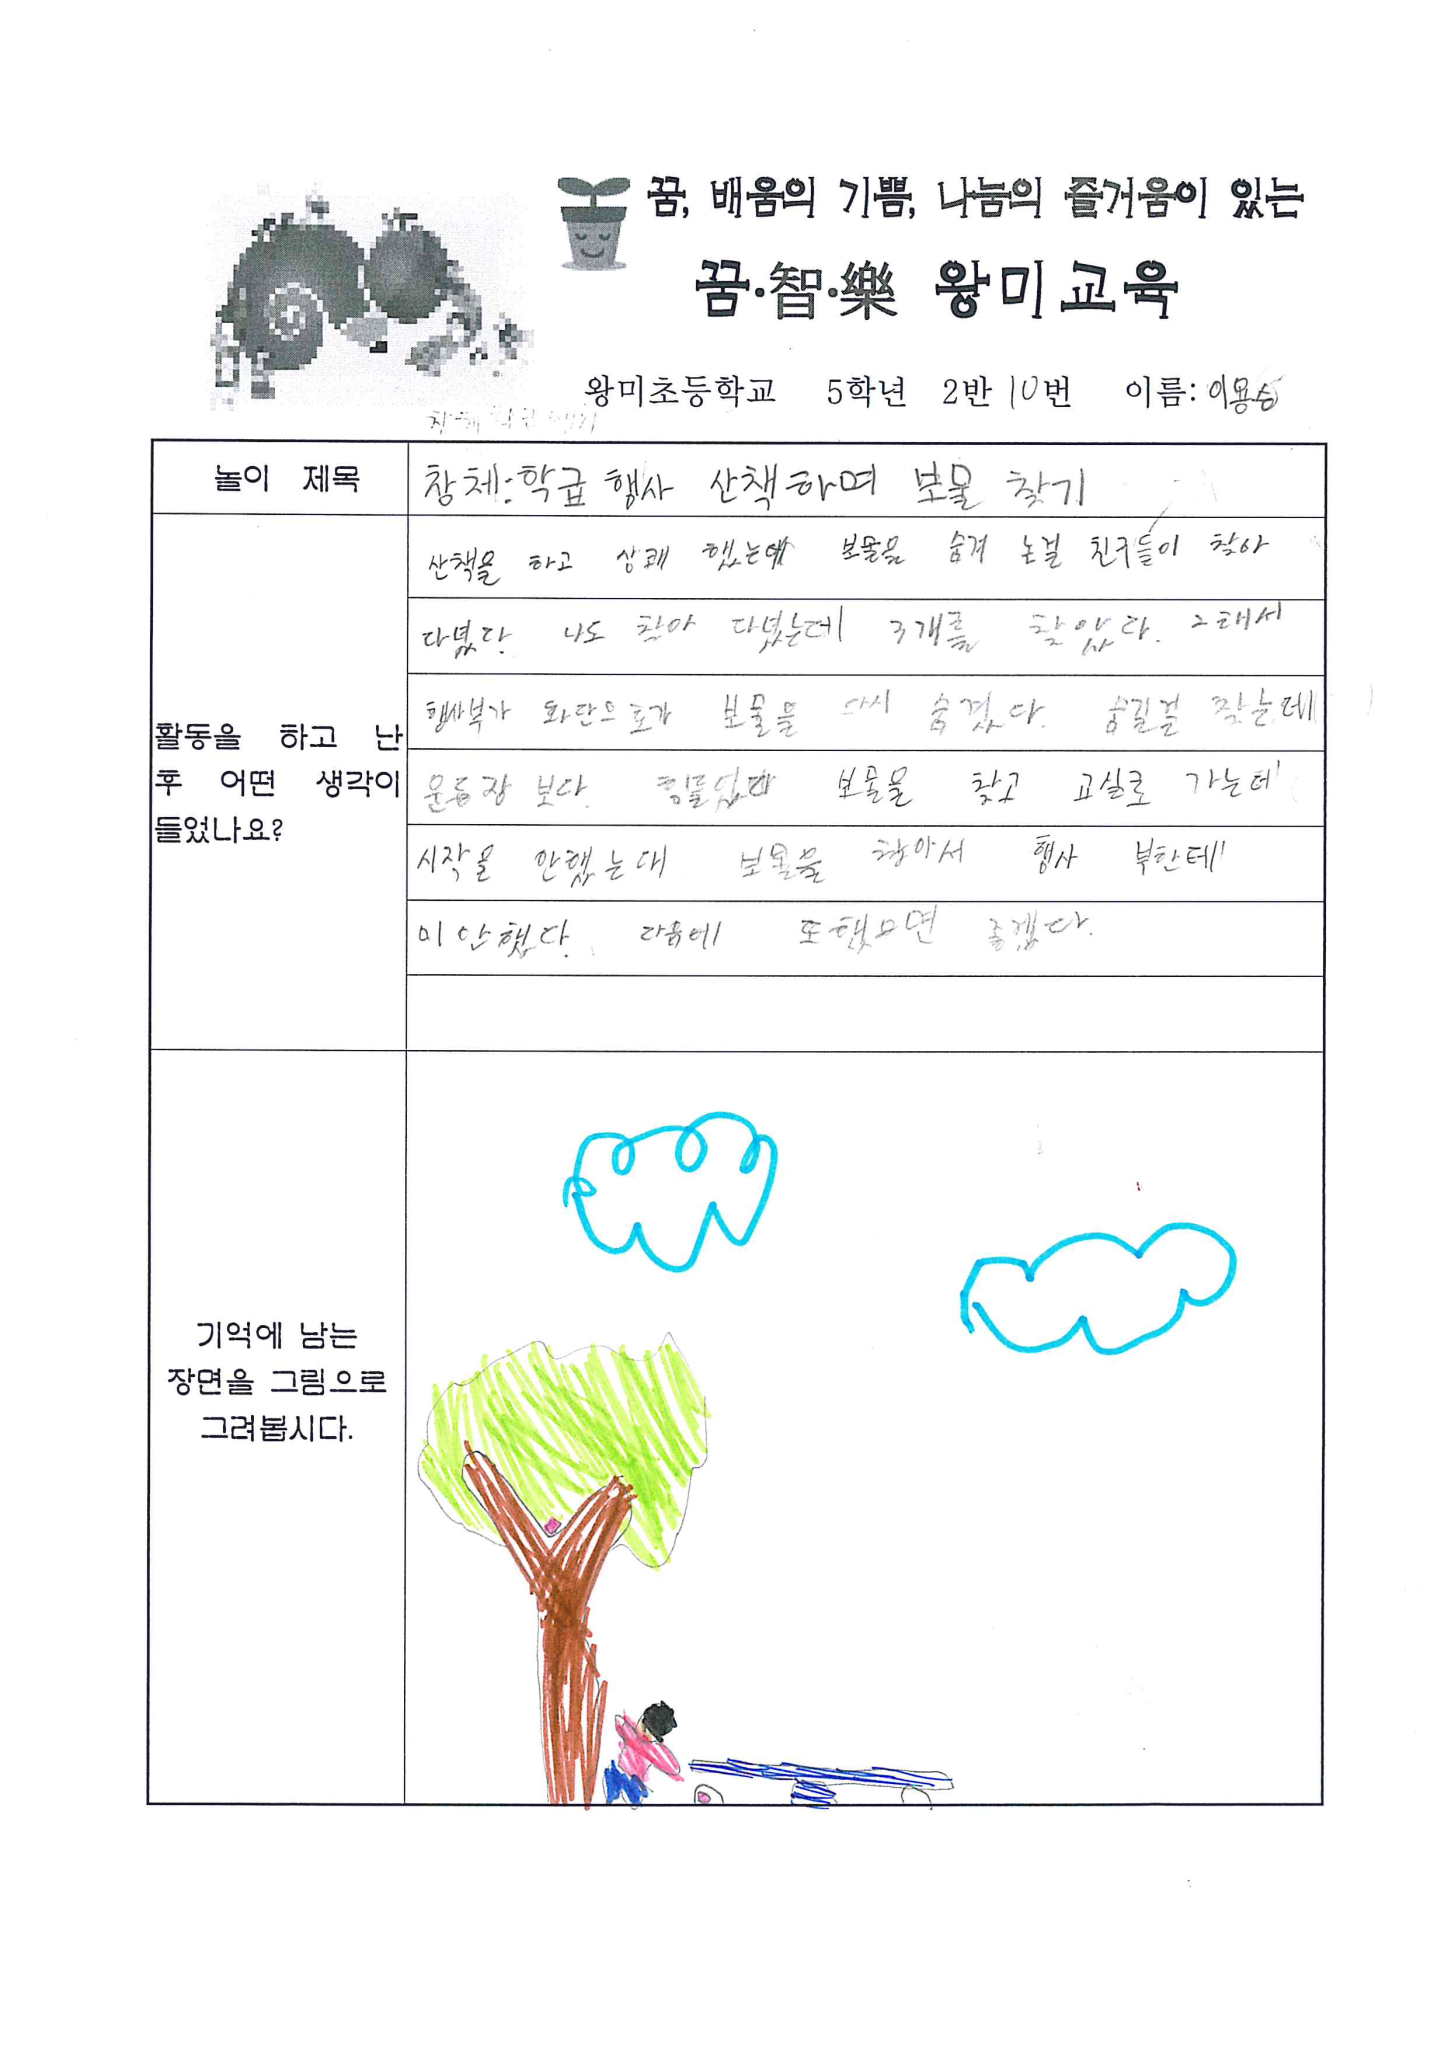 꿈, 배움의 기쁨, 나눔의 즐거움이 있는
꿈·智·樂 왕미교육
왕미초등학교 5학년 2반 10번 이름: 이용승
놀이 제목
창체:학급 행사 산책하며 보물 찾기
활동을 하고 난
후 어떤 생각이
들었나요?
산책을 하고 상쾌 했는데 보물을 숨겨 논걸 친구들이 찾아
다녔다. 나도 찾아 다녔는데 3개를 찾았다. 그래서
행사부가 화단으로가 보물을 다시 숨겼다. 숨긴걸 찾는데
운동장 보다. 힘들었다 보물을 찾고 교실로 가는데
시작을 안했는데 보물을 찾아서 행사 부한테
미안했다. 다음에 또했으면 좋겠다.
기억에 남는
장면을 그림으로
그려봅시다.